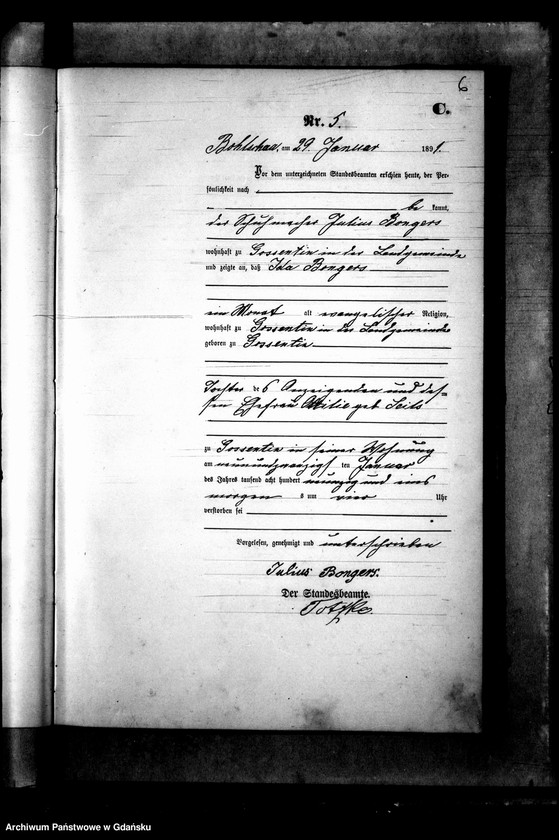 6
C.
Nr. 5.
Bohlschau, am 29. Januar 1891.
Vor dem unterzeichneten Standesbeamten erschien heute, der Per-
sönlichkeit nach
be kannt,
der Schuhmacher Julius Bongers
wohnhaft zu Gossentin in der Landgemeinde
und zeigte an, daß Ida Bongers
ein Monat alt evangelischer Religion,
wohnhaft zu Gossentin in der Landgemeinde
geboren zu Gossentin
Tochter des Anzeigenden und des-
sen Ehefrau geb. Seils
zu Gossentin in seiner Wohnung
am neunundzwanzigsten Januar
des Jahres tausend acht hundert neunzig und eins
morgens um vier Uhr
verstorben sei
Vorgelesen, genehmigt und unterschrieben
Julius Bongers.
Der Standesbeamte.
Totzke.
Archiwum Państwowe w Gdańsku